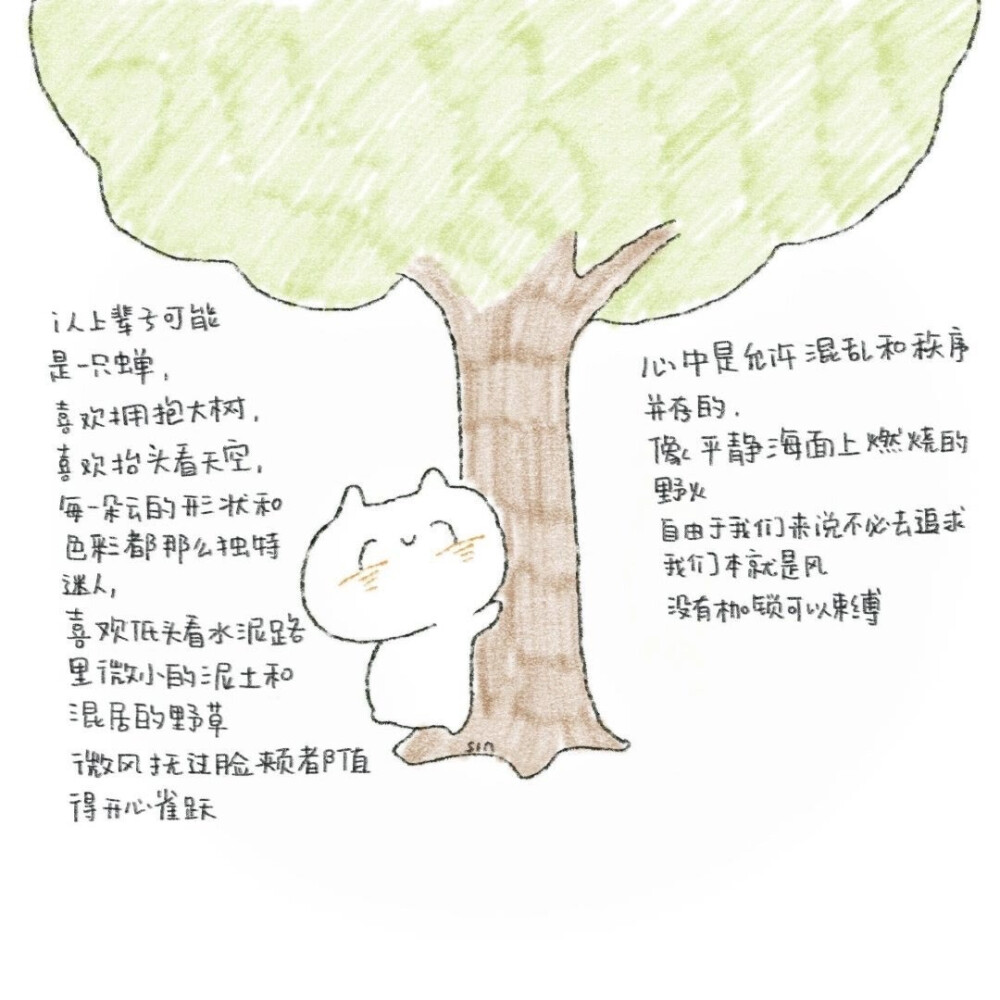 认上辈子可能
是一只蝉，
喜欢拥抱大树，
喜欢抬头看天空，
每一朵云的形状和
色彩都那么独特
迷人，
喜欢低头看水泥路
里微小的泥土和
混居的野草
微风抚过脸颊都值
得开心雀跃
心中是允许混乱和秩序
并存的．
像平静海面上燃烧的
野火
自由于我们来说不必去追求
我们本就是风
没有枷锁可以束缚
sin